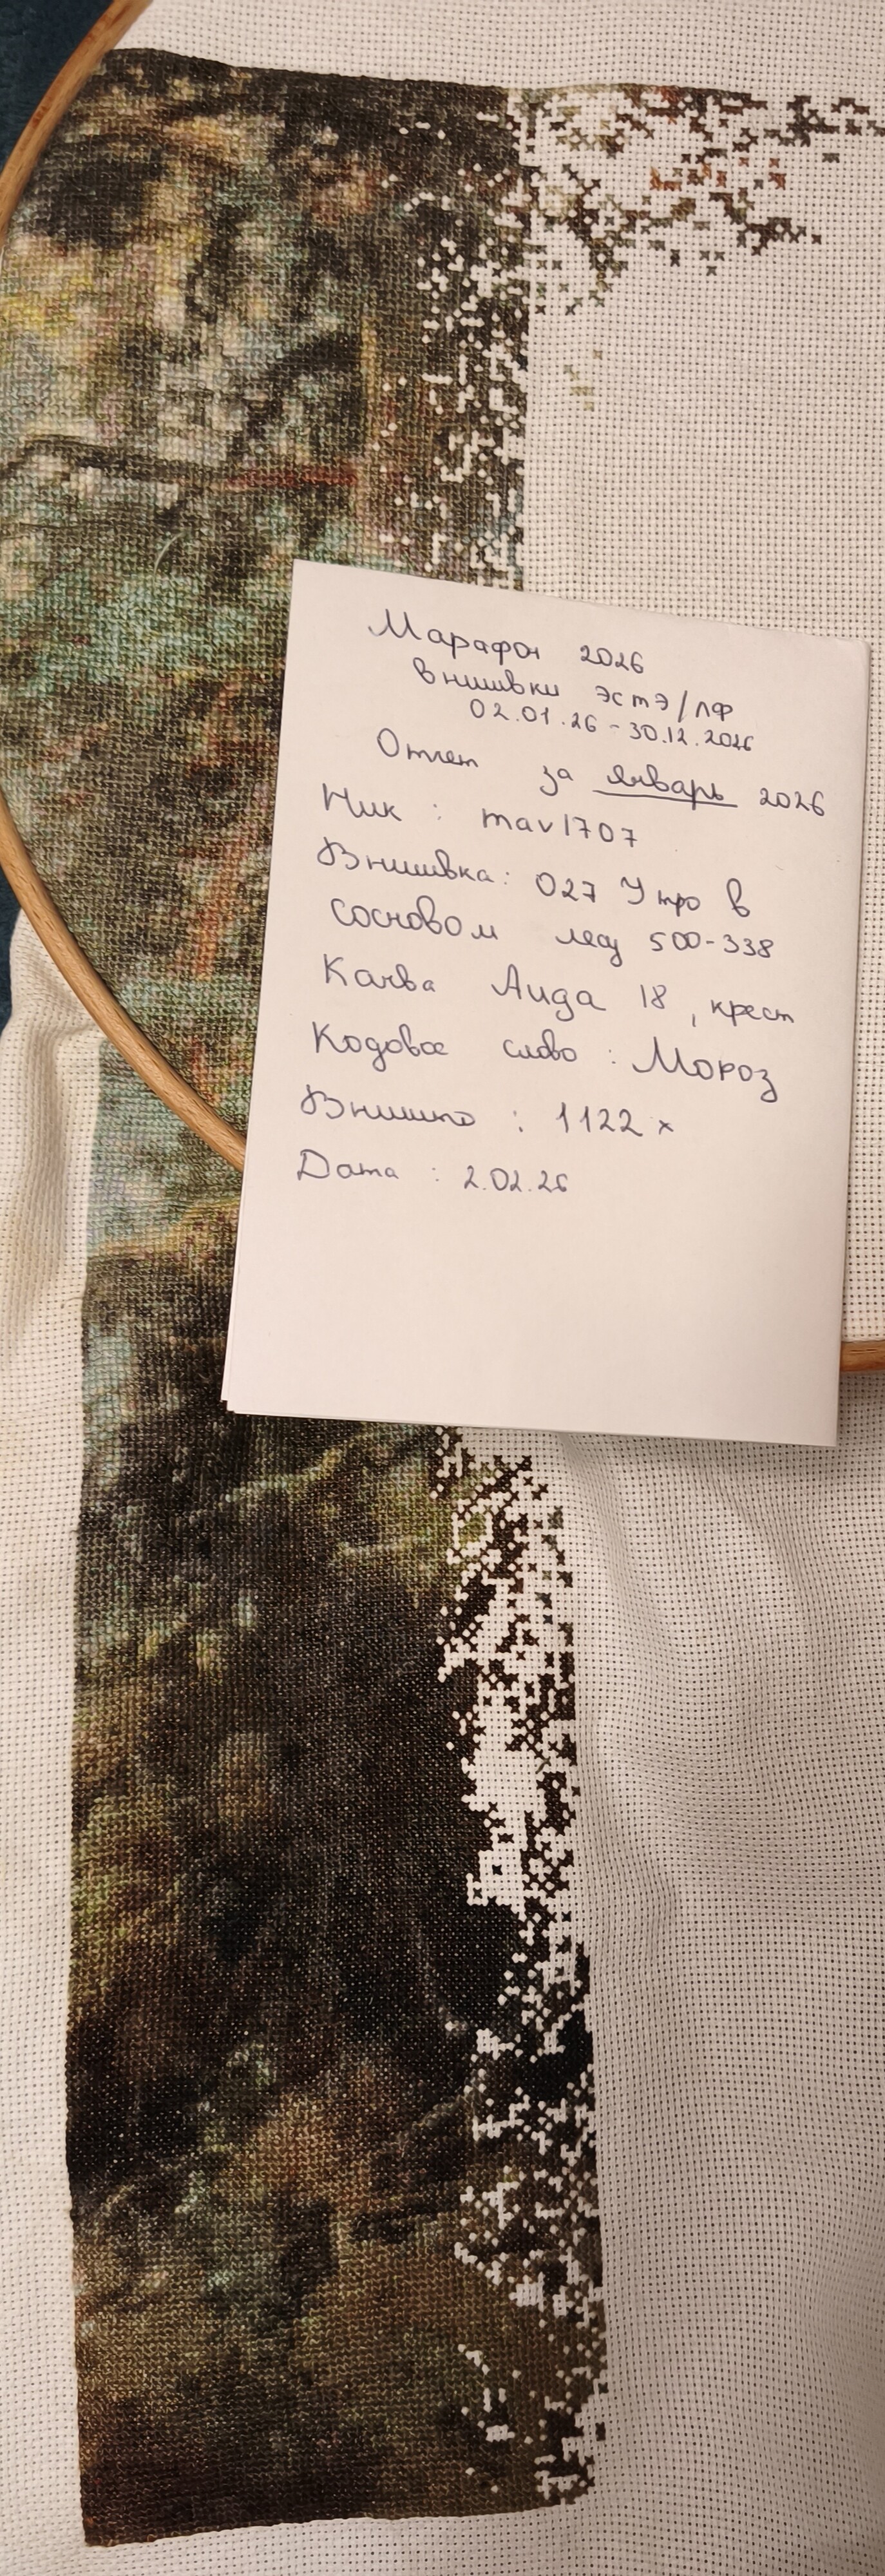 Марафон 2026
Вышивки ЭстЭ/ЛФ
02.01.26 - 30.12.2026
Отчет за январь 2026
Ник : mav1707
Вышивка: 027 Утро в
сосновом лесу 500-338
Канва Аида 18, крест
Кодовое слово : Мороз
Вышито : 1122 х
Дата : 2.02.26